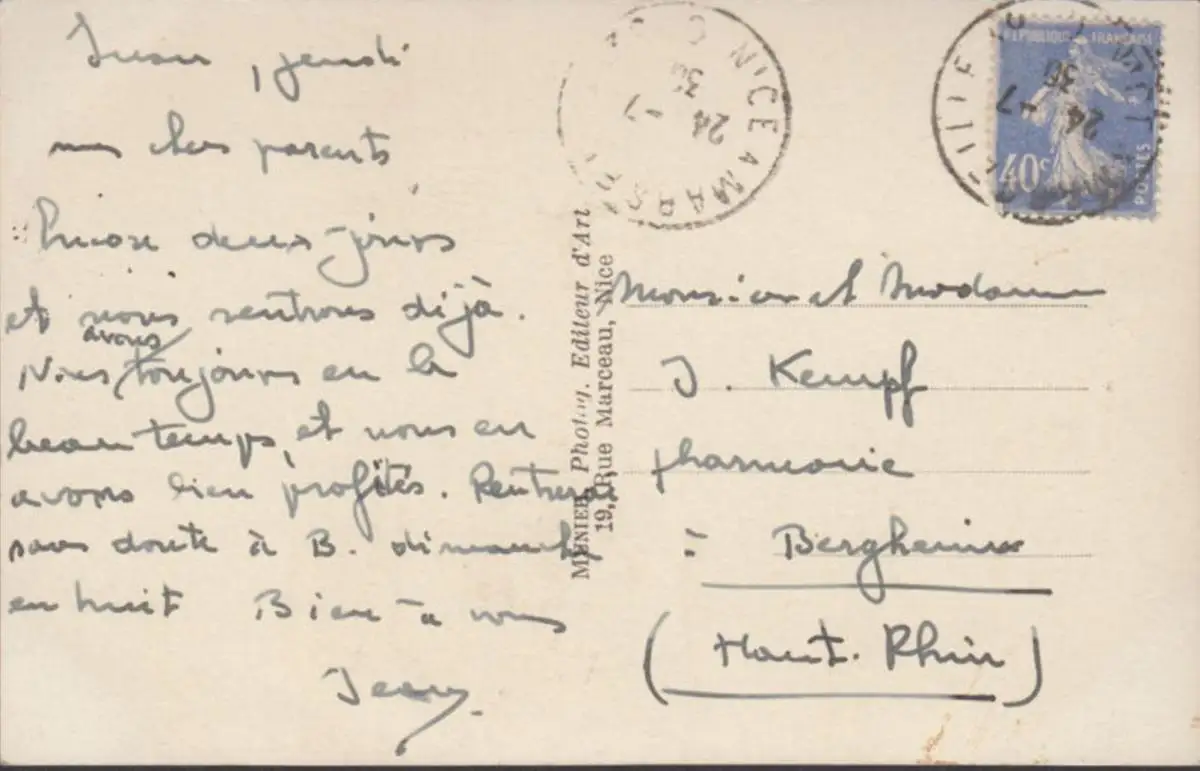 jeudi
mes chers parents
Encore deux jours
et nous rentrons déjà.
avons
Nous toujours eu le
beau temps, et nous en
avons bien profités. Rentrerai
sans doute à B. dimanche
en huit Bien à vous
Jean.
MUNIER, Photog. Editeur d'Art
19, Rue Marceau, Nice
NICE A MARS
24 -7
30
RÉPUBLIQUE FRANÇAISE
40c
POSTES
24 -7
30
Monsieur et Madame
J. Kempf
pharmacie
à Bergheim
(Haut-Rhin)